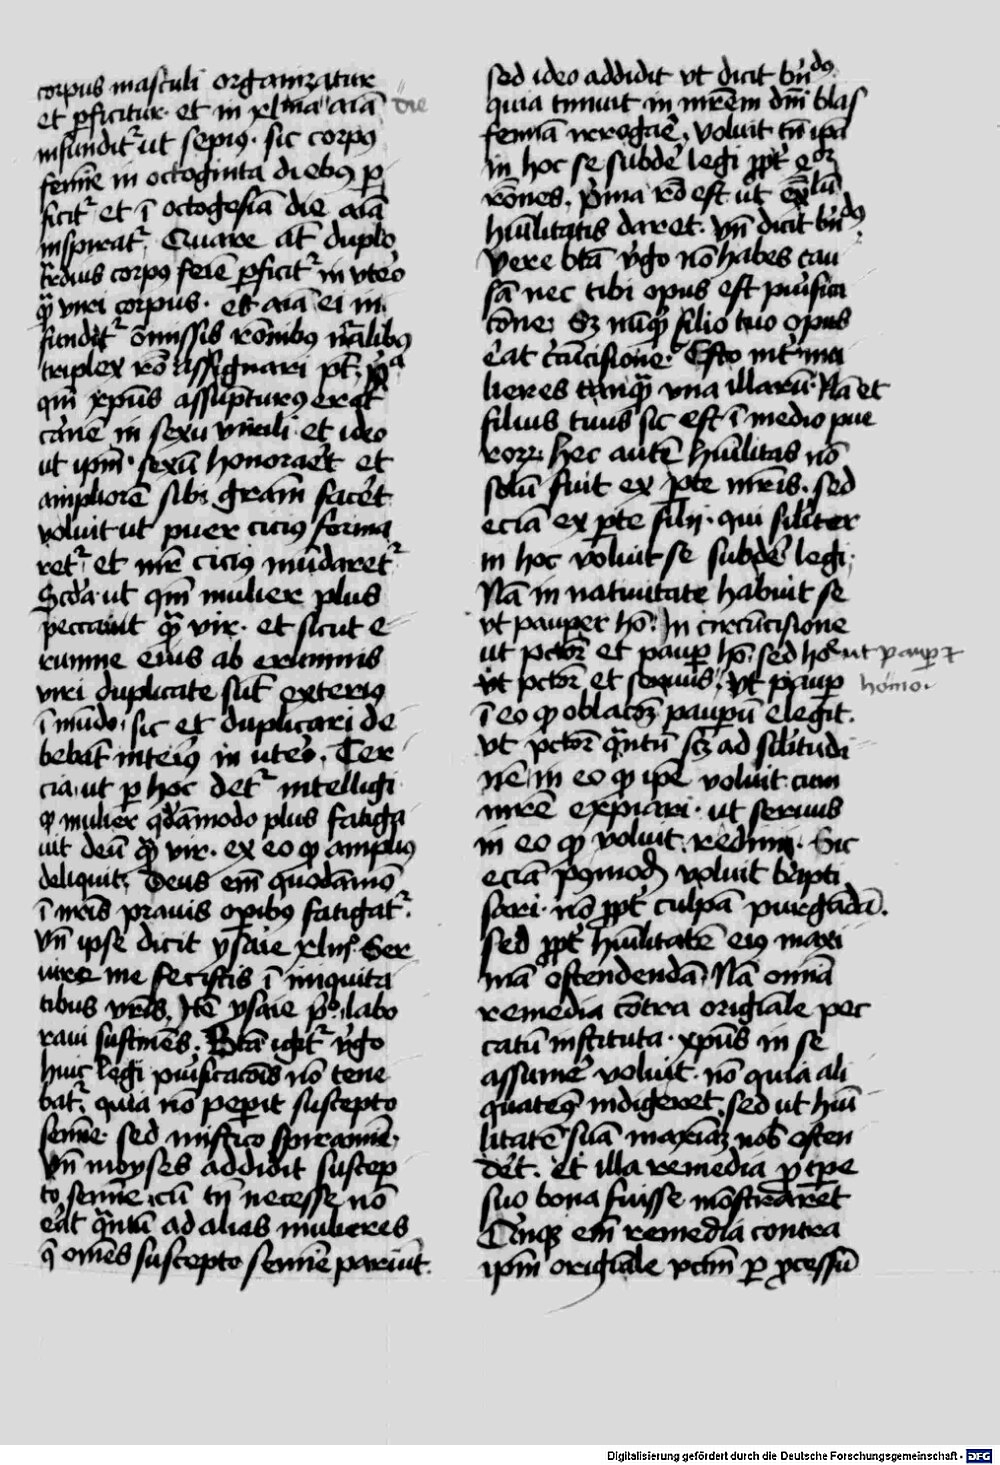 corpus masculi organizatur
et ꝑficitur · et in xlma aīā die
infundit᷑ ut sepiꝰ · sic corpꝰ
femīe in octoginta diebꝰ ꝑ
ficit᷑ et ī octogesīa die aīā
inspirat᷑ . Quare at̄ duplo
tͣrdius corpꝰ feīe ꝑficit᷑ in vteͦo
qͣ̄ viri corpus · et aīā ei in
fundit᷑ om̄issis rōnibꝰ nr̄alibꝰ
triplex rō assignari pt̄ · pͥᵃ
qm̄ xp̄us assūpturꝰ erat
carnē in sexu virili et ideo
ut ipm̄ sexū honoraret et
ampliorē sibi gram̄ facet
voluit ut puer ciciꝰ forma
ret᷑ et mr̄ ciciꝰ mūdaret᷑
Scd̄a ut qm̄ mulier plus
peccauit qͣ̄ vir · et sicut e
rumne eius ab erumnis
viri duplicate sūt exteriꝰ
ī mūdo · sic et duplicari de
bebat̄ interiꝰ in uteͦo . Ter
cia ut ꝑ hoc det᷑ intelligi
ꝙ mulier qd̄āmodo plus fatiga
uit deū qͣ̄ vir · ex eo ꝙ ampliꝰ
deliquit · Deus em̄ quodāmō
ī nr̄is prauis oꝑibꝰ fatigat᷑ .
Vn̄ ipse dicit ysaie xliij° Ser
uire me fecistis ī iniquita
tibus vr̄is . Itē ysaie p° labo
raui sustinēs . Btā igit᷑ vͥgo
huic legi pur̄ificacōis nō tene
bat᷑ . quia nō peꝑit suscepto
semīe · sed mistico spiramīe ·
Vn̄ moyses addidit suscep
to semīe · cū tn̄ necesse nō
er̄at qͣntū ad alias mulieres
q̄ om̄es suscepto semīe pariūt .
sed ideo addidit vt dicit bn̄dꝰ
quia timuit in mr̄em dn̄i blas
femiā irrogare . voluit tn̄ ipā
in hoc se subder̄ legi ꝓpt̄ eoꝝ
rōnes . pͥma rō est ut exͫplū
hūilitatis daret . Vn̄ dicit bn̄dꝰ
Vere btā vͥgo nō habes cau
sā nec tibi opus est pur̄ifica
cōne · Sꝫ nūqͥd filio tuo opus
er̄at cͥcūcisione · Esto int̄ mu
lieres tanqͣ̄ vna illarū · Nā et
filius tuus sic est ī medio pue
roꝝ · hec autē hūilitas nō
solū fuit ex ꝑte mr̄is . sed
eciā ex ꝑte filij · qui siliter
in hoc voluit se subder̄ legi ·
Nā in natiuitate habuit se
vt pauper hō . In circūcisione
ut pctor̄ et pauꝑ hō · sed hoͩ
ut pauꝑ ⁊ homo ·
vt pctor̄ et seruus . Vt pauꝑ
ī eo ꝙ oblacōꝫ pauꝑū elegit .
Vt pctor̄ qͣntū scꝫ ad silitudi
nē in eo ꝙ ipē voluit cum
mr̄e expiari · ut seruus
in eo ꝙ voluit redimi · Sic
eciā pꝰmodū voluit bapti
sari · nō ꝓpt̄ culpā purgādā .
sed ꝓpt̄ hūilitatē eiꝰ maxi
mā ostendendā . Nā omīa
remedia cōtra origiāle pec
catū instituta · xp̄us in se
assumer̄ voluit · nō quia ali
quatenꝰ indigeret . sed ut hūi
litatē suā maxīaꝫ nob̄ osten
der̄et . Et illa remedia ꝓ tꝑe
suo bona fuisse mōstraret
Quinqꝫ em̄ remedia contra
ipm̄ origiāle pctm̄ ꝑ ꝓcessū
Digitalisierung gefördert durch die Deutsche Forschungsgemeinschaft - DFG